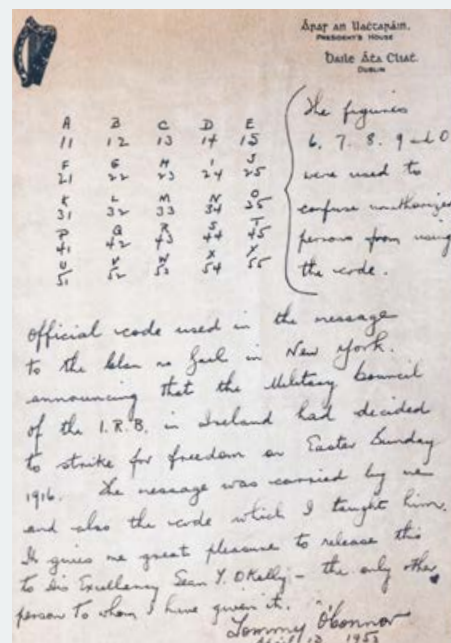 Áras an Uachtaráin,
PRESIDENT'S HOUSE
Baile Átha Cliath.
DUBLIN
A B C D E
11 12 13 14 15
F G H I J
21 22 23 24 25
K L M N O
31 32 33 34 35
P Q R S T
41 42 43 44 45
U V W X Y
51 52 53 54 55
The figures
6. 7. 8. 9 and 0
were used to
confuse unauthorized
persons from using
the code.
Official code used in the message
to the Clan na Gael in New York.
announcing that the Military Council
of the I.R.B. in Ireland had decided
to strike for freedom on Easter Sunday
1916. The message was carried by me
and also the code which I taught him.
It gives me great pleasure to release this
to his Excellency Sean T. O'Kelly – the only other
person to whom I have given it.
Tommy O'Connor
April 1953